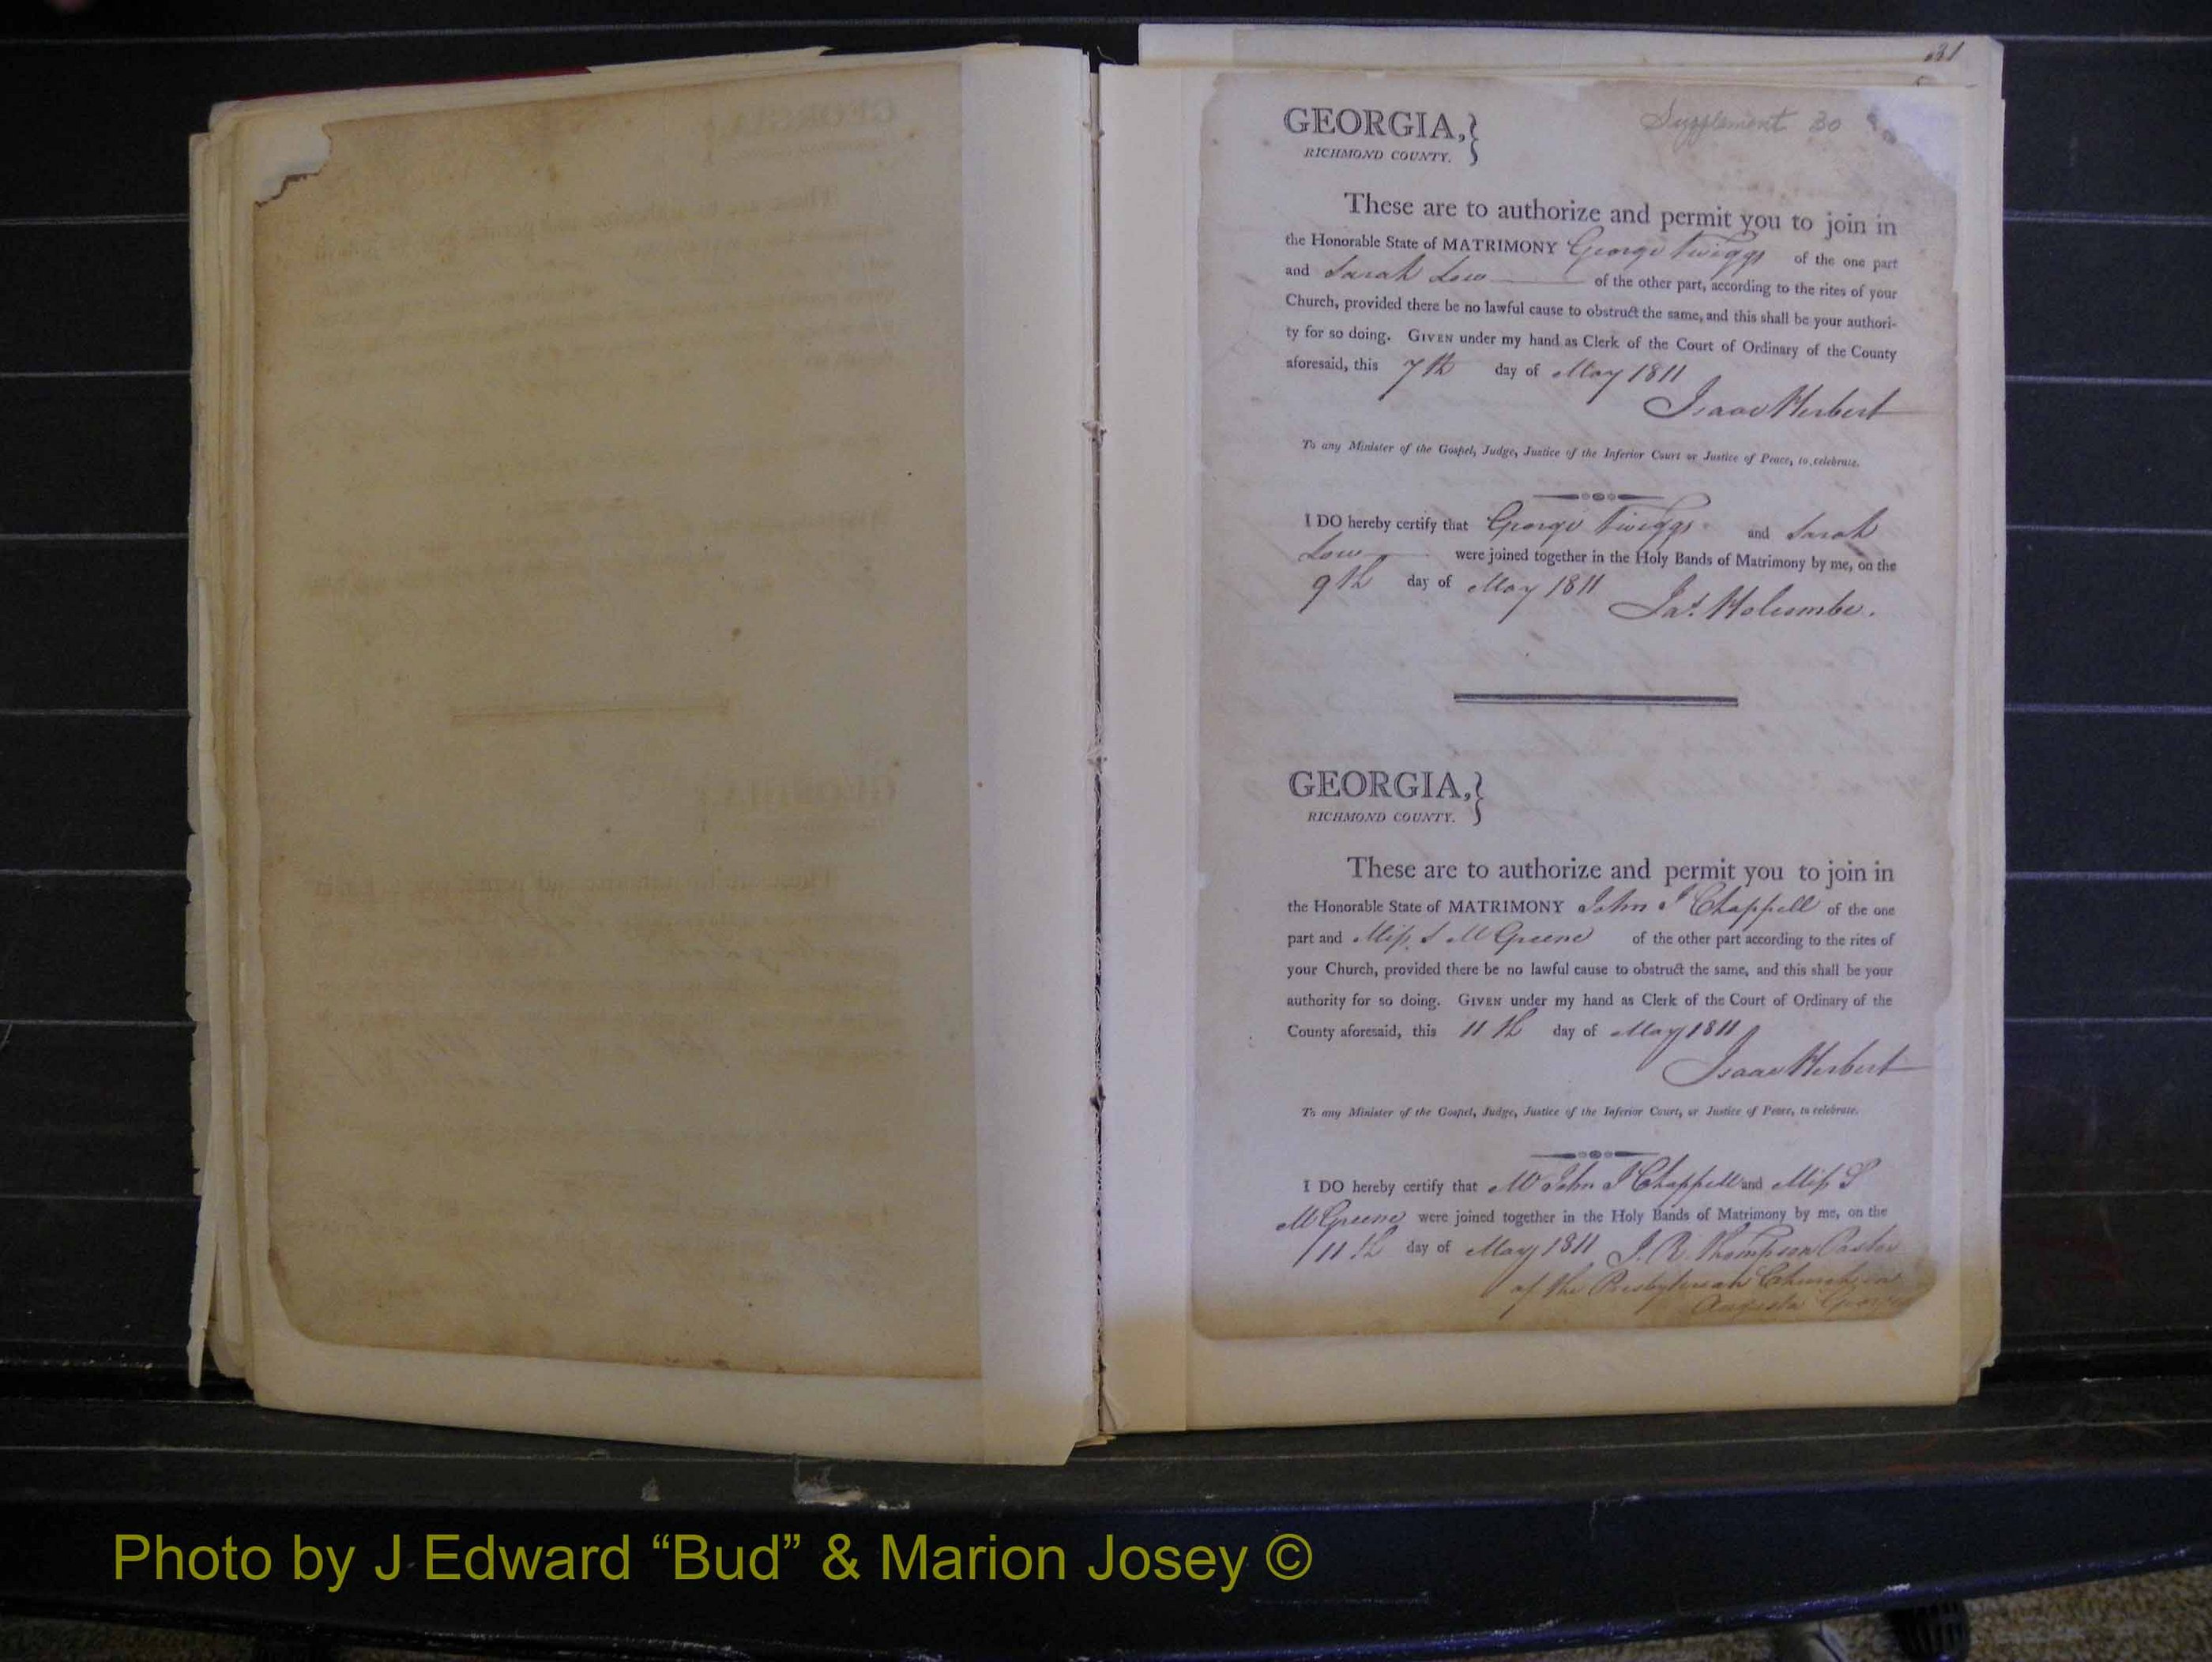 31
Supplement 30
GEORGIA,
RICHMOND COUNTY.
These are to authorize and permit you to join in
the Honorable State of MATRIMONY George Twiggs of the one part
and Sarah Low of the other part, according to the rites of your
Church, provided there be no lawful cause to obstruct the same, and this shall be your authori-
ty for so doing. GIVEN under my hand as Clerk of the Court of Ordinary of the County
aforesaid, this 7th day of May 1811
Isaac Herbert
To any Minister of the Gospel, Judge, Justice of the Inferior Court or Justice of Peace, to celebrate.
I DO hereby certify that George Twiggs and Sarah
Low were joined together in the Holy Bands of Matrimony by me, on the
9th day of May 1811 Jas. Holcombe.
GEORGIA,
RICHMOND COUNTY.
These are to authorize and permit you to join in
the Honorable State of MATRIMONY John J Chappell of the one
part and Miss S M Greene of the other part according to the rites of
your Church, provided there be no lawful cause to obstruct the same, and this shall be your
authority for so doing. GIVEN under my hand as Clerk of the Court of Ordinary of the
County aforesaid, this 11th day of May 1811
Isaac Herbert
To any Minister of the Gospel, Judge, Justice of the Inferior Court, or Justice of Peace, to celebrate.
I DO hereby certify that Mr John J Chappell and Miss S
M Greene were joined together in the Holy Bands of Matrimony by me, on the
11th day of May 1811 J. R. Thompson Pastor
of the Presbyterian Church in
Augusta Georgia
Photo by J Edward “Bud” & Marion Josey ©